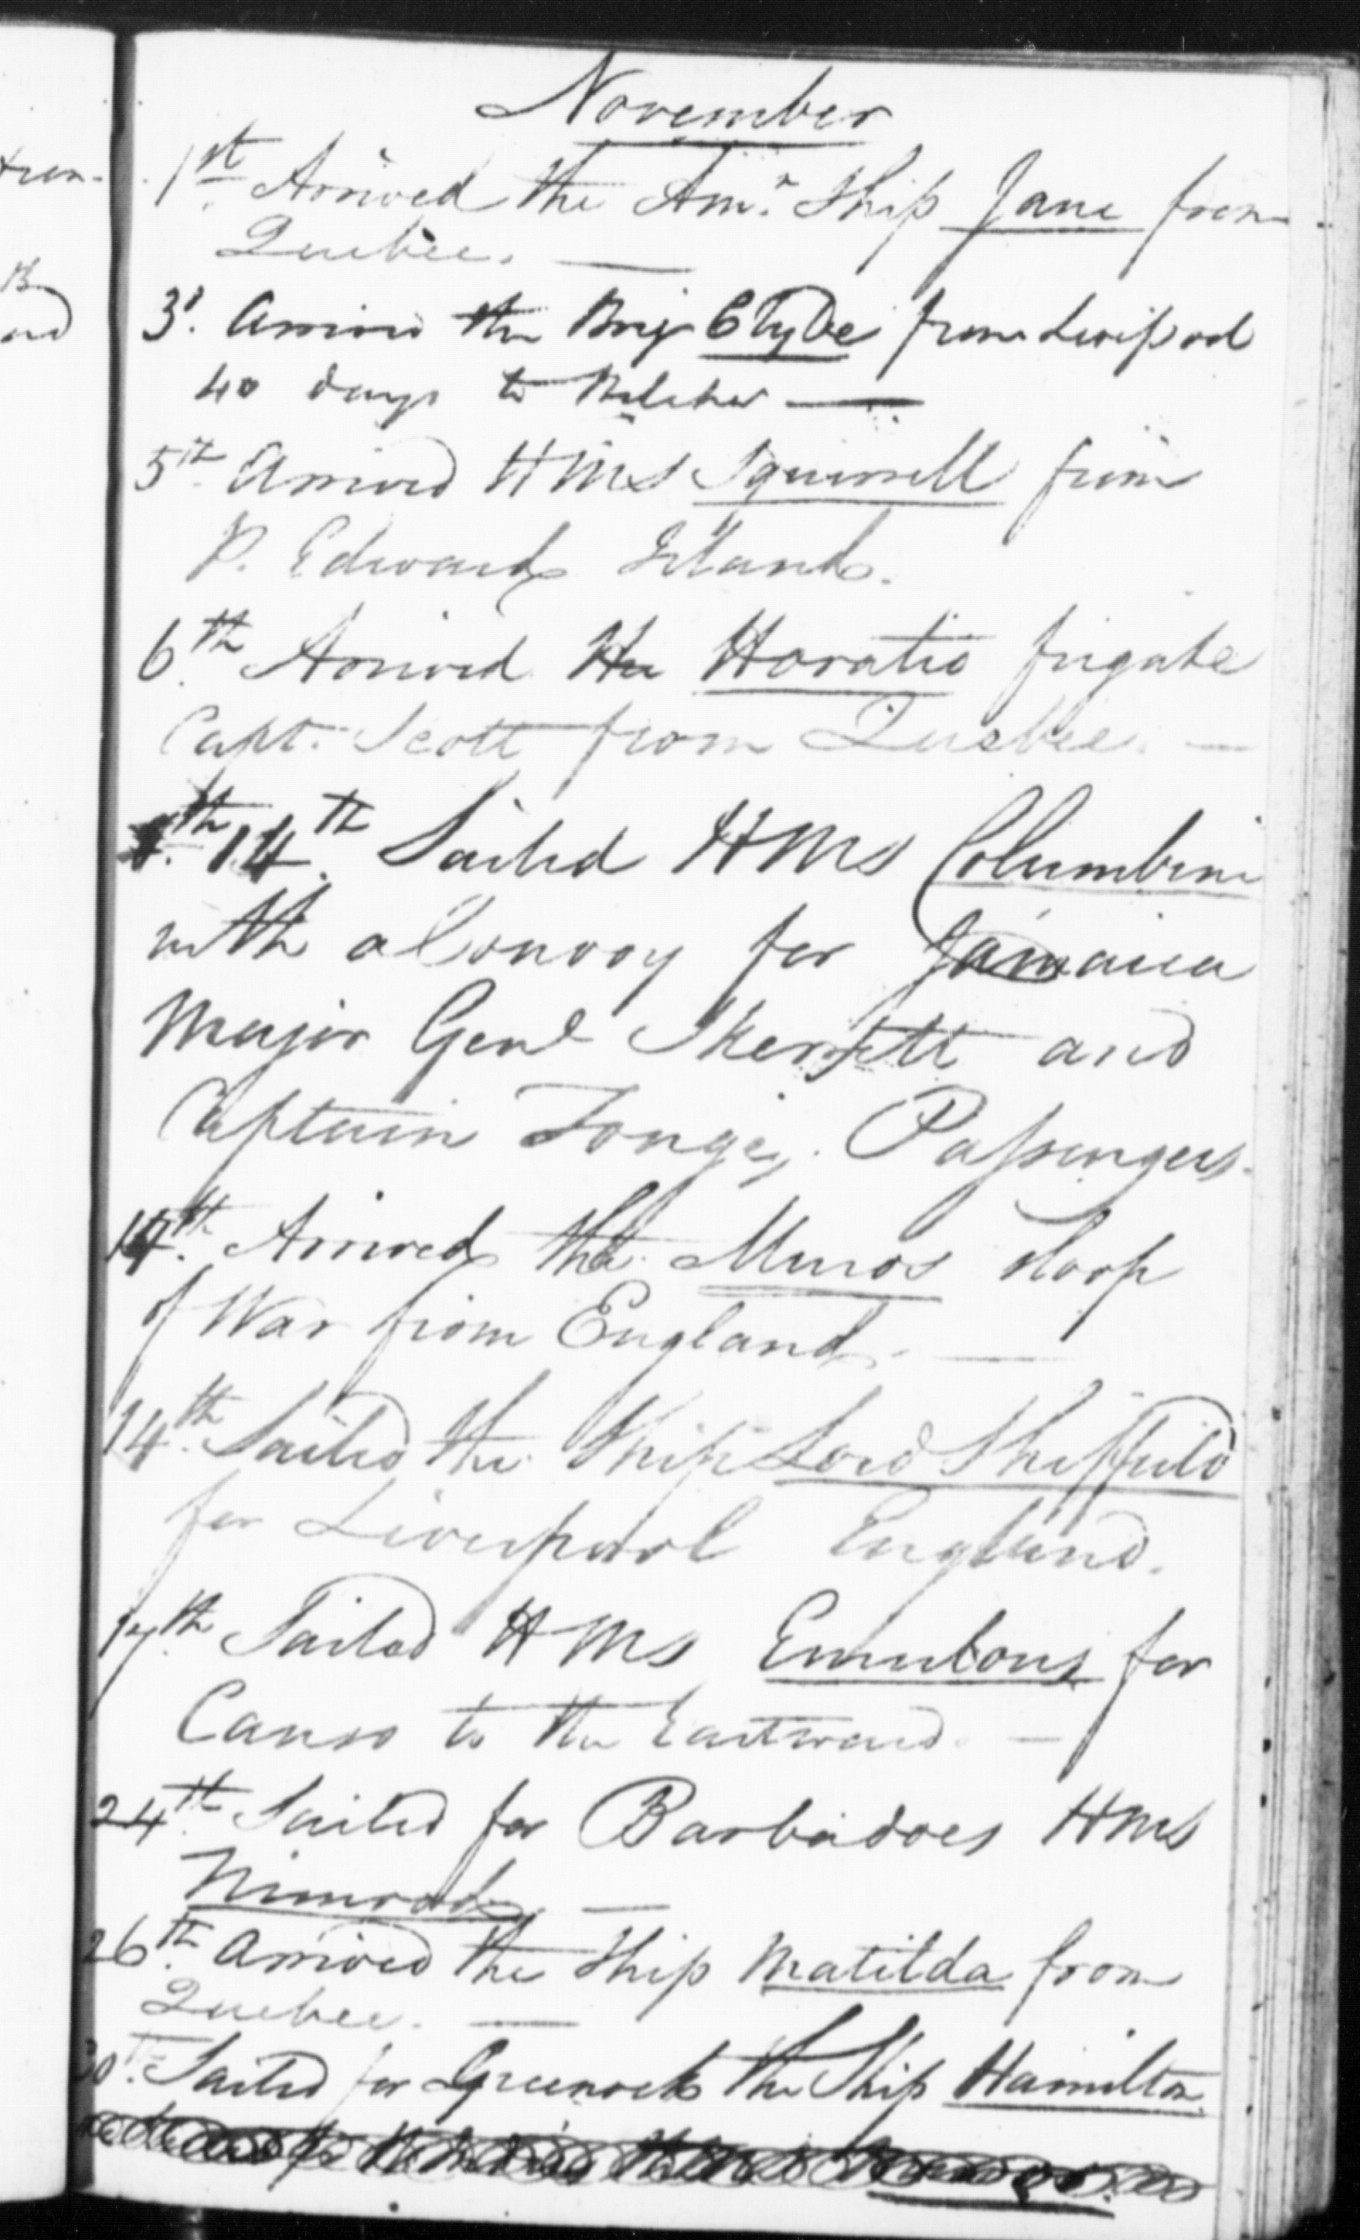 November
1st. Arrived the Amn. Ship Jane from
Quebec. —
3d. Arrived the Brig Clyde from Liverpool
40 days to Belcher —
5th. Arrived HMS Squirrell from
P. Edwards Island.
6th. Arrived the Horatio frigate
Capt. Scott from Quebec. —
14th. Sailed HMS Columbine
with a Convoy for Jamaica
Major Genl Skerrett and
Captain Tonge, Passengers.
14th. Arrived the Muros sloop
of War from England. —
14th. Sailed the Ship Lord Sheffield
for Liverpool England.
17th. Sailed HMS Emulous for
Canso to the Eastward. —
24th. Sailed for Barbadoes HMS
Nimrod. —
26th. Arrived the Ship Matilda from
Quebec. —
30th. Sailed for Greenock the Ship Hamilton.